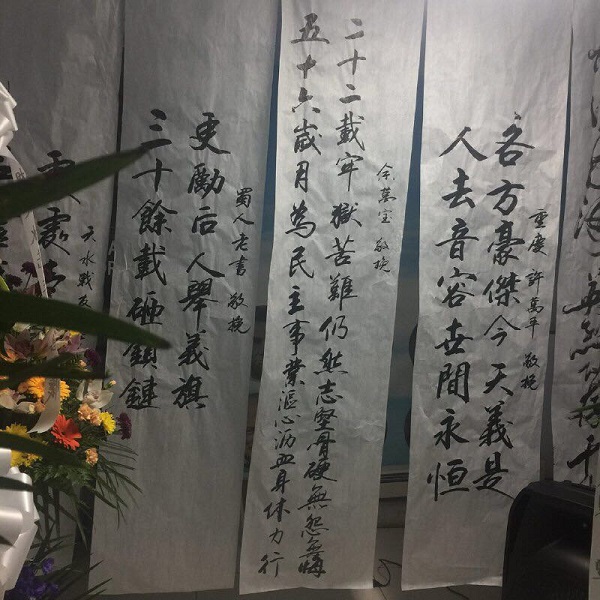 重慶許萬平 敬挽
各方豪傑今天義是
人去音容世間永恒
余萬宝 敬挽
二十二載牢獄苦難仍然志堅骨硬無怨無悔
五十六歲月為民主事業漚心沥血身体力行
蜀人老書 敬挽
更勵后人舉義旗
三十餘載砸鎖鏈
天水戰友